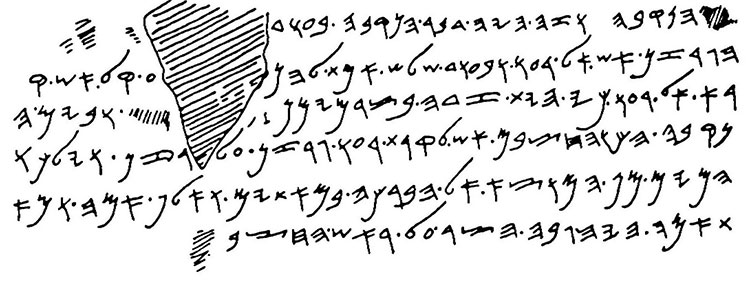 𐤄𐤍𐤒𐤁𐤄 𐤅𐤆𐤄.𐤄𐤉𐤄.𐤃𐤁𐤓.𐤄𐤍𐤒𐤁𐤄.𐤁𐤏𐤅𐤃
𐤄𐤂𐤓𐤆𐤍.𐤀𐤔.𐤀𐤋.𐤓𐤏𐤅.𐤅𐤁𐤏𐤅𐤃.𐤔𐤋𐤔.𐤀𐤌𐤕.𐤋𐤄𐤍 𐤏.𐤒𐤋.𐤀𐤔.𐤒
𐤓𐤀.𐤀𐤋.𐤓𐤏𐤅.𐤊𐤉.𐤄𐤉𐤕.𐤆𐤃𐤄.𐤁𐤑𐤓.𐤌𐤉𐤌𐤍 .𐤅𐤁𐤉𐤌.𐤄
𐤍𐤒𐤁𐤄.𐤄𐤊𐤅.𐤄𐤇𐤑𐤁𐤌.𐤀𐤔.𐤋𐤒𐤓𐤕.𐤓𐤏𐤅.𐤂𐤓𐤆𐤍.𐤏𐤋.𐤓𐤆𐤍.𐤅𐤉𐤋𐤊𐤅
𐤄𐤌𐤉𐤌.𐤌𐤍.𐤄𐤌𐤅𐤑𐤀.𐤀𐤋.𐤄𐤁𐤓𐤊𐤄.𐤁𐤌𐤀𐤕𐤉𐤌.𐤅𐤀𐤋𐤐.𐤀𐤌𐤄.𐤅𐤌𐤀
𐤕.𐤀𐤌𐤄.𐤄𐤉𐤄.𐤂𐤁𐤄.𐤄𐤑𐤓.𐤏𐤋.𐤓𐤀𐤔.𐤄𐤇𐤑𐤁